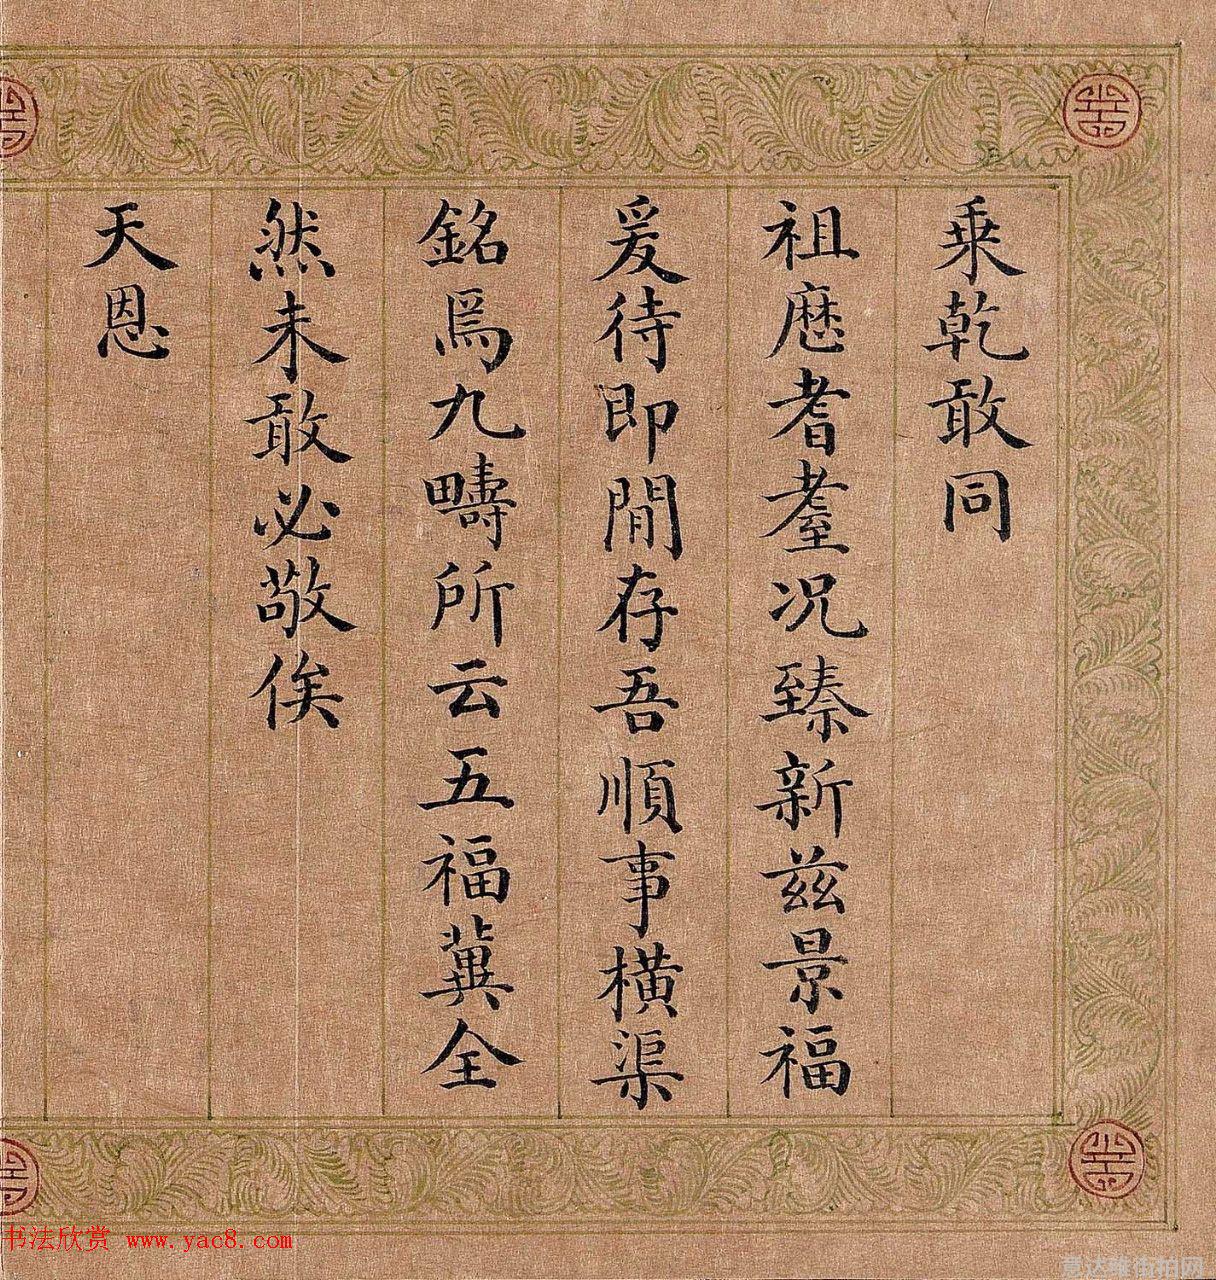 乗乾敢同
祖歷耆耋況臻新兹景福
爰待即閒存吾順事橫渠
銘焉九疇所云五福冀全
然未敢必敬俟
天恩
书法欣赏 www.yac8.com